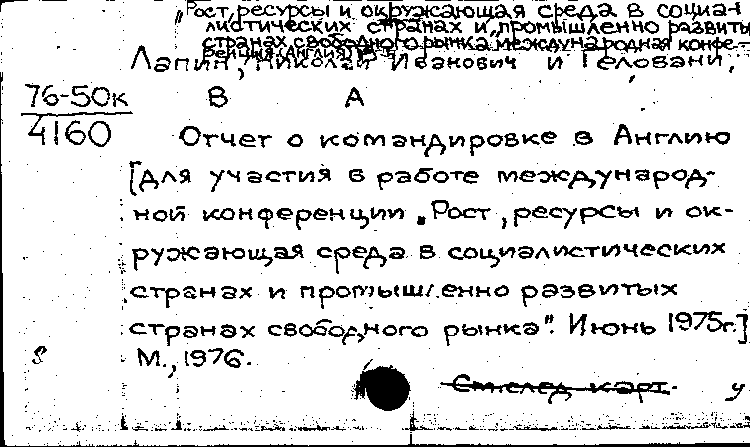 „Рост, ресурсы и окружающая среда в социа-
листических странах и промышленно развиты
странах свободного рынка международная конфе-
ренция (Англия)
Лапин, Николай Иванович и Геловани,
76-50к В А
4160 Отчет о командировке в Англию
[для участия в работе международ-
ной конференции „Рост, ресурсы и ок-
ружающая среда в социалистических
странах и промышленно развитых
странах свободного рынка". Июнь 1975г.]
М., 1976.
См. след. карт. у